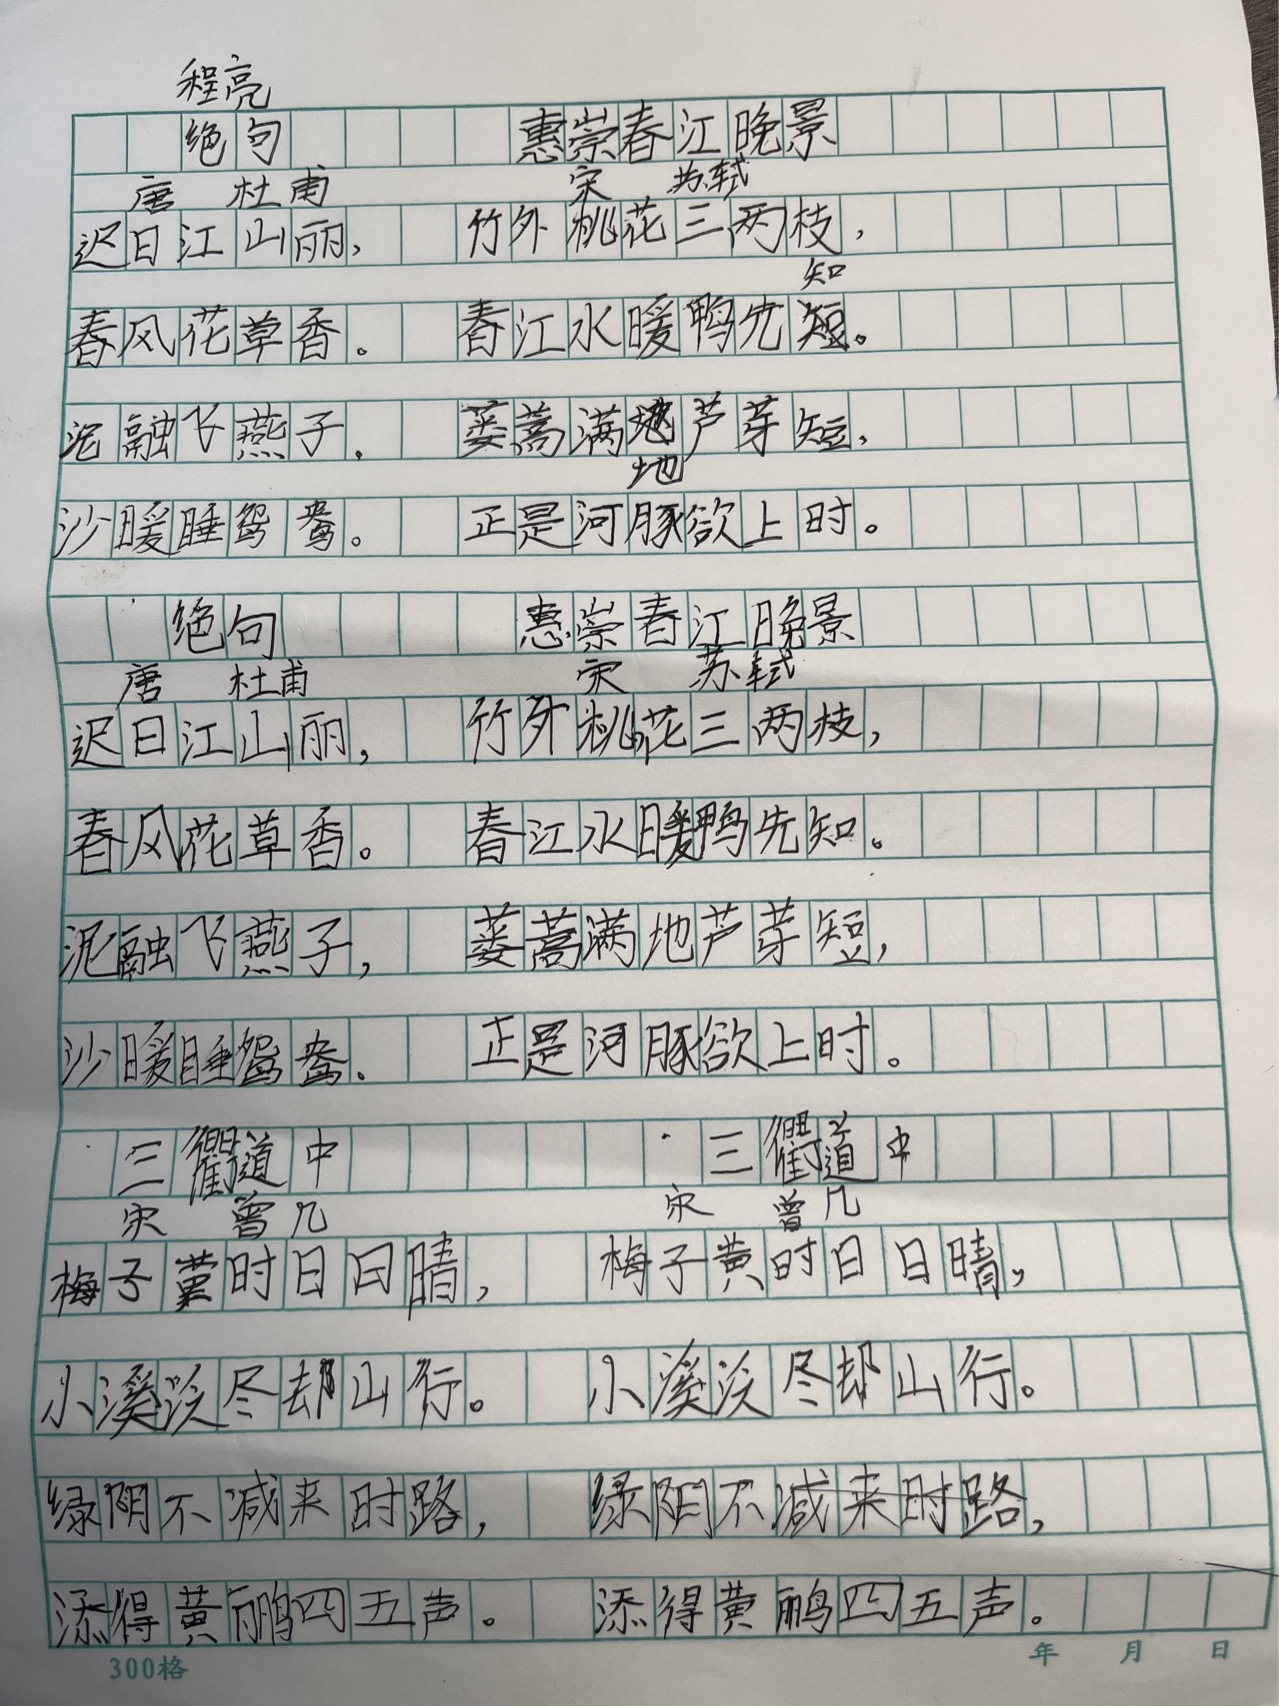 程亮
绝句 惠崇春江晚景
唐 杜甫 宋 苏轼
迟日江山丽， 竹外桃花三两枝，
知
春风花草香。 春江水暖鸭先短。
泥融飞燕子， 蒌蒿满地芦芽短，
地
沙暖睡鸳鸯。 正是河豚欲上时。
绝句 惠崇春江晚景
唐 杜甫 宋 苏轼
迟日江山丽， 竹外桃花三两枝，
春风花草香。 春江水暖鸭先知。
泥融飞燕子， 蒌蒿满地芦芽短，
沙暖睡鸳鸯. 正是河豚欲上时。
三衢道中 三衢道中
宋 曾几 宋 曾几
梅子黄时日日晴， 梅子黄时日日晴，
小溪泛尽却山行。 小溪泛尽却山行。
绿阴不减来时路， 绿阴不减来时路，
添得黄鹂四五声。 添得黄鹂四五声。
300格 年 月 日